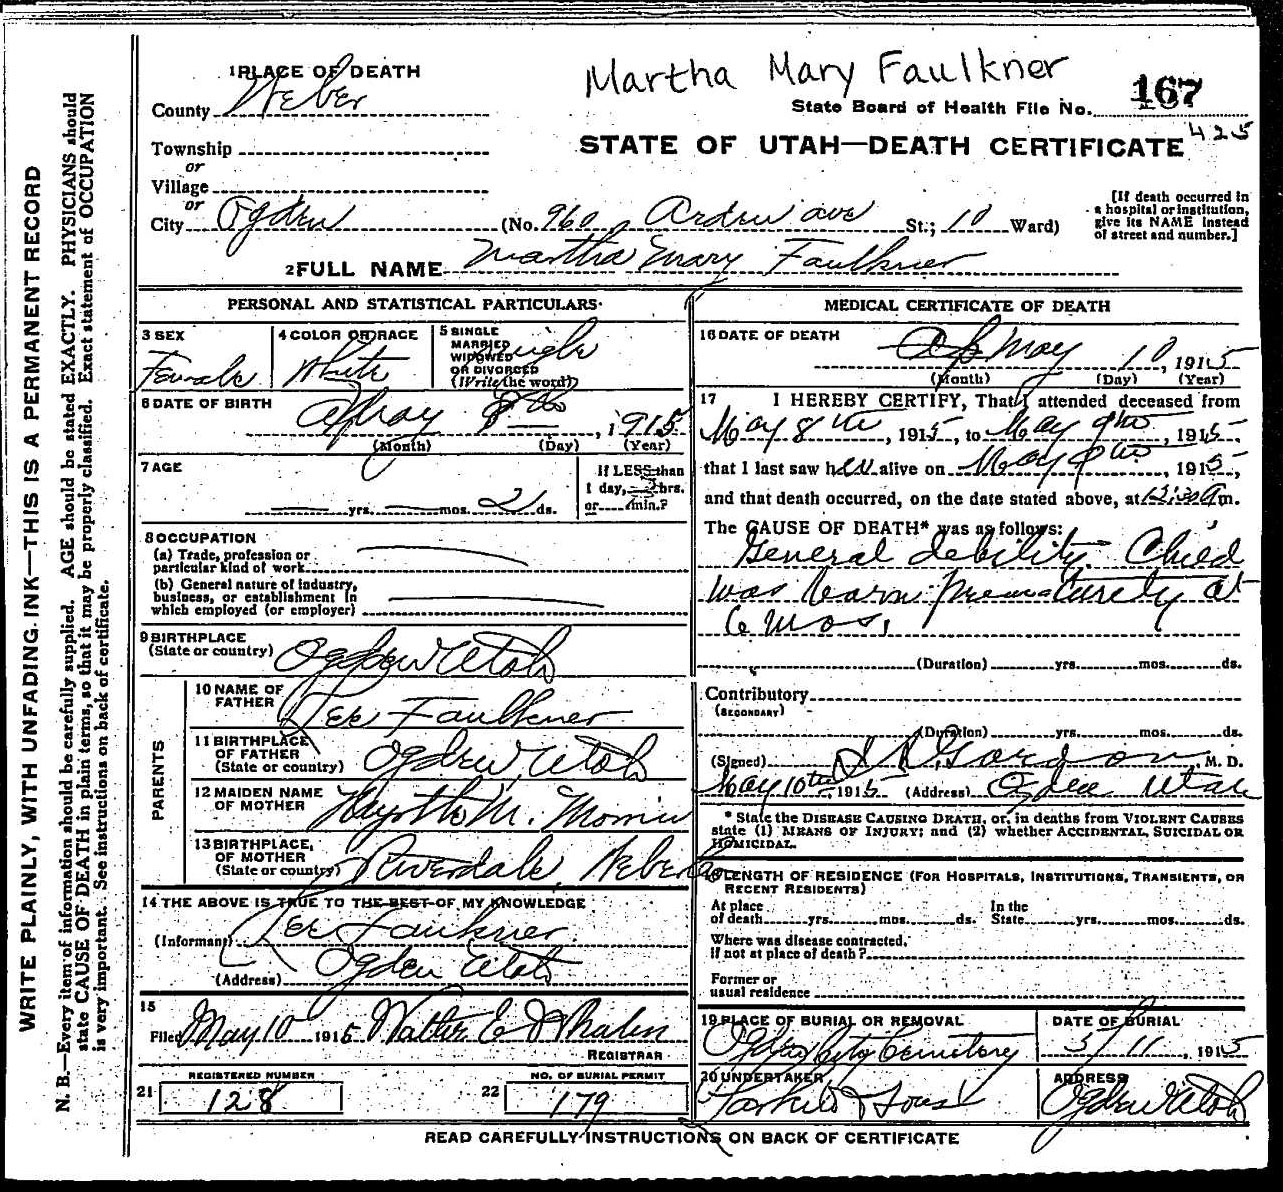 Martha Mary Faulkner
1 PLACE OF DEATH
County Weber
State Board of Health File No. 167
425
STATE OF UTAH—DEATH CERTIFICATE
Township
or
Village
or
City Ogden (No. 960 ave St.; 10 Ward)
[If death occurred in
a hospital or institution,
give its NAME instead
of street and number.]
2 FULL NAME Martha Mary Faulkner
PERSONAL AND STATISTICAL PARTICULARS
3 SEX
Female
4 COLOR OR RACE
White
5 SINGLE
MARRIED
WIDOWED
OR DIVORCED
(Write the word)
Single
6 DATE OF BIRTH
May 8th, 1915
(Month) (Day) (Year)
7 AGE
— yrs. — mos. 2 ds.
If LESS than
1 day, hrs.
or min.?
8 OCCUPATION
(a) Trade, profession or
particular kind of work
(b) General nature of industry,
business, or establishment in
which employed (or employer)
9 BIRTHPLACE
(State or country) Ogden Utah
PARENTS
10 NAME OF
FATHER
Lee Faulkner
11 BIRTHPLACE
OF FATHER
(State or country) Ogden Utah
12 MAIDEN NAME
OF MOTHER
M.
13 BIRTHPLACE,
OF MOTHER
(State or country) Riverdale, Weber
14 THE ABOVE IS TRUE TO THE BEST OF MY KNOWLEDGE
(Informant) Lee Faulkner
(Address) Ogden Utah
15
Filed May 10 1915 Walter E
REGISTRAR
21 REGISTERED NUMBER
128
22 NO. OF BURIAL PERMIT
179
MEDICAL CERTIFICATE OF DEATH
16 DATE OF DEATH
Ap May 10, 1915
(Month) (Day) (Year)
17 I HEREBY CERTIFY, That I attended deceased from
May 8th, 1915, to May 9th, 1915,
that I last saw her alive on May 9th, 1915,
and that death occurred, on the date stated above, at 12:30 A m.
The CAUSE OF DEATH* was as follows:
General debility. Child
was born prematurely at
6 mos.
(Duration) yrs. mos. ds.
Contributory
(SECONDARY)
(Duration) yrs. mos. ds.
(Signed) Gordon, M. D.
May 10th, 1915 (Address) Ogden Utah
* State the DISEASE CAUSING DEATH, or, in deaths from VIOLENT CAUSES
state (1) MEANS OF INJURY; and (2) whether ACCIDENTAL, SUICIDAL OR
HOMICIDAL.
18 LENGTH OF RESIDENCE (FOR HOSPITALS, INSTITUTIONS, TRANSIENTS, OR
RECENT RESIDENTS)
At place
of death yrs. mos. ds.
In the
State yrs. mos. ds.
Where was disease contracted,
if not at place of death?
Former or
usual residence
19 PLACE OF BURIAL OR REMOVAL
Ogden City Cemetery
DATE OF BURIAL
5/11, 1915
20 UNDERTAKER
& Sons
ADDRESS
Ogden Utah
READ CAREFULLY INSTRUCTIONS ON BACK OF CERTIFICATE
WRITE PLAINLY, WITH UNFADING INK—THIS IS A PERMANENT RECORD
N. B.—Every item of information should be carefully supplied. AGE should be stated EXACTLY. PHYSICIANS should
state CAUSE OF DEATH in plain terms, so that it may be properly classified. Exact statement of OCCUPATION
is very important. See instructions on back of certificate.